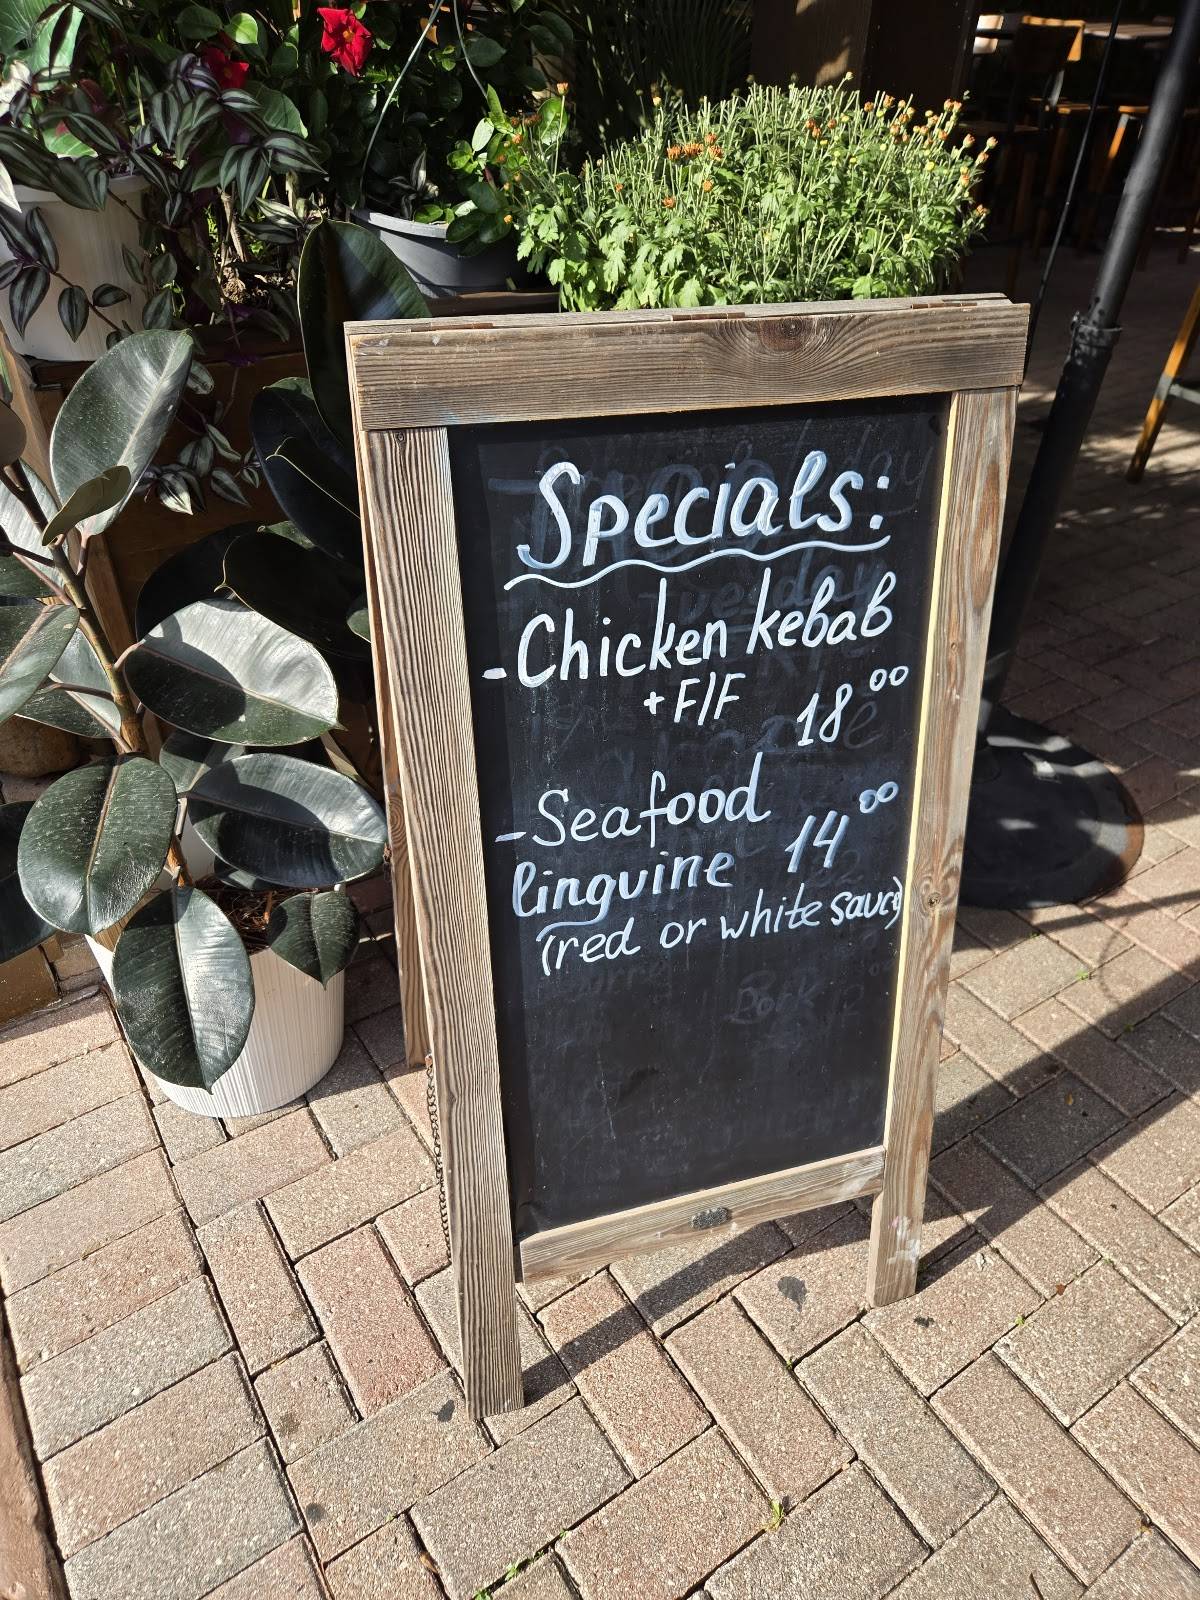 Specials:
-Chicken kebab
+F/F 18⁰⁰
-Seafood
linguine 14⁰⁰
(red or white sauce)
Pork